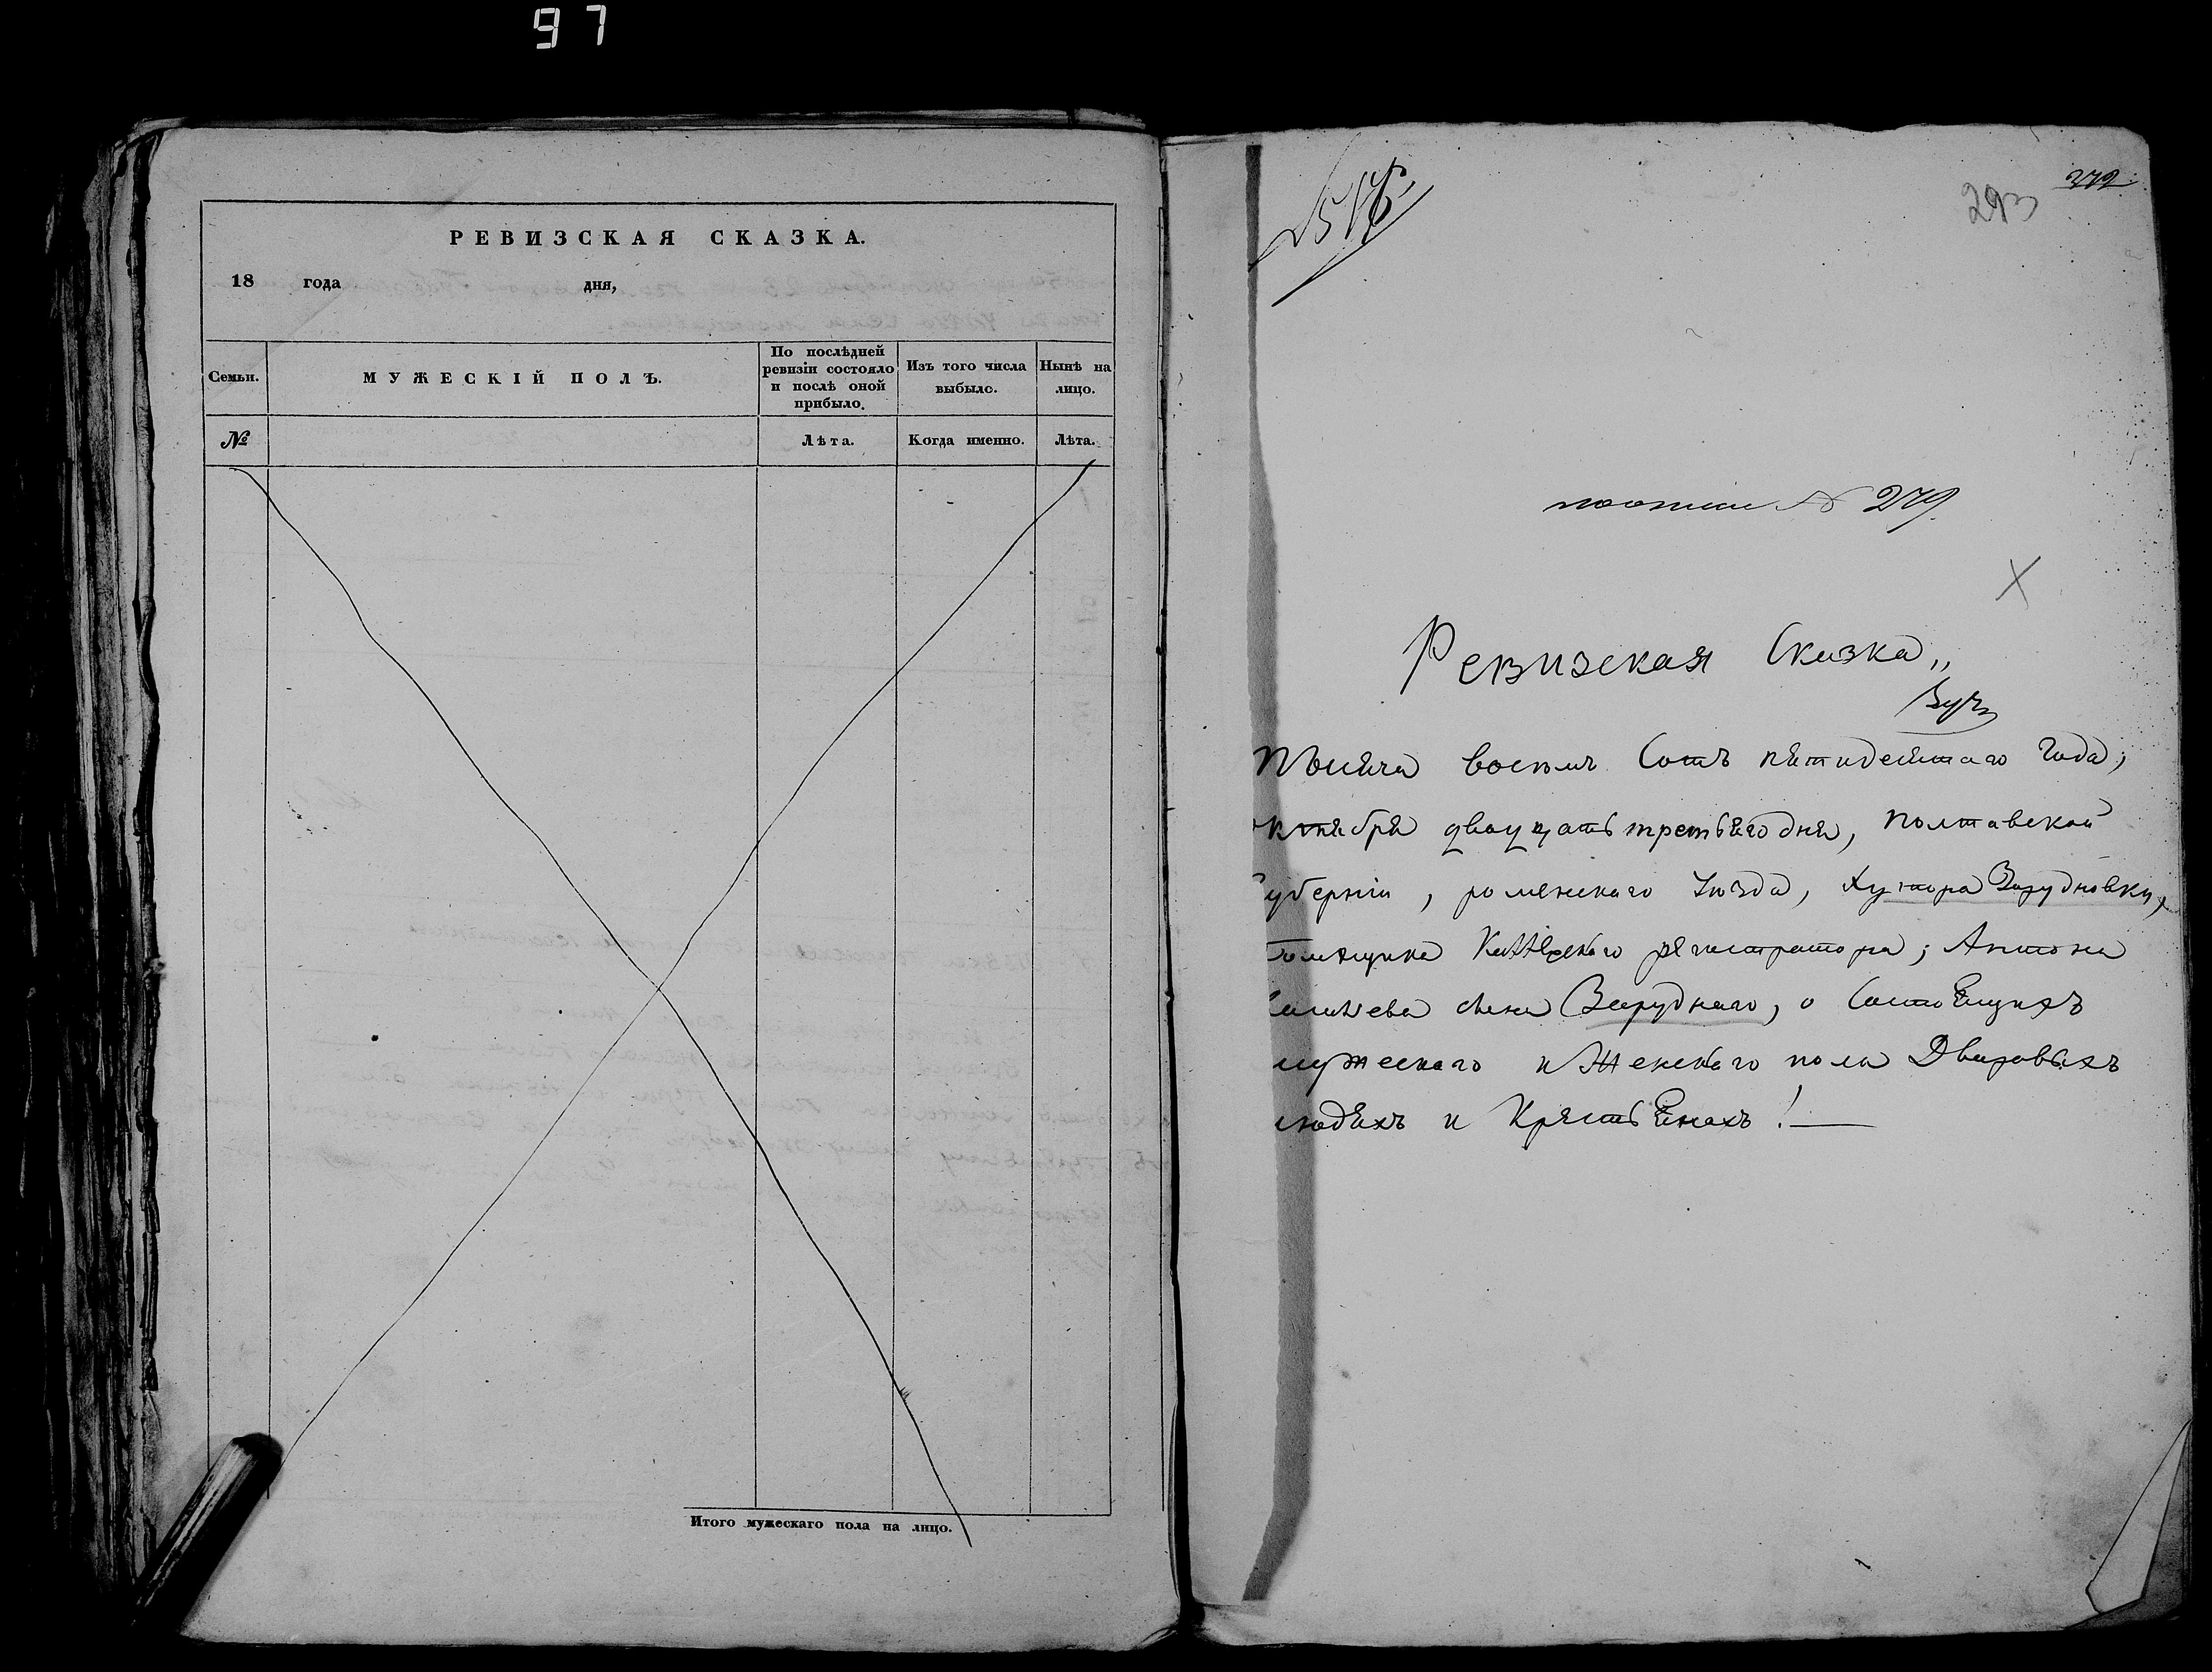 97
РЕВИЗСКАЯ СКАЗКА.
18 года дня,
Семьи.
МУЖЕСКІЙ ПОЛЪ.
По послѣдней
ревизіи состояло
и послѣ оной
прибыло.
Изъ того числа
выбыло.
Нынѣ на
лицо.
№
Лѣта.
Когда именно.
Лѣта.
Итого мужескаго пола на лицо.
272
293
№ 279
Ревизская Сказка„
Тысяча восемъ Сотъ пятидесятаго Года;
октября двацать третьяго дня, полтавской
Губерніи, роменскаго уѣзда, хутора Зарудновки,
Помѣщика Регистратора; Антона
сына Заруднаго, о Состоящихъ
мужескаго и Женскаго пола Дваровыхъ
людяхъ и Крястьянахъ!—